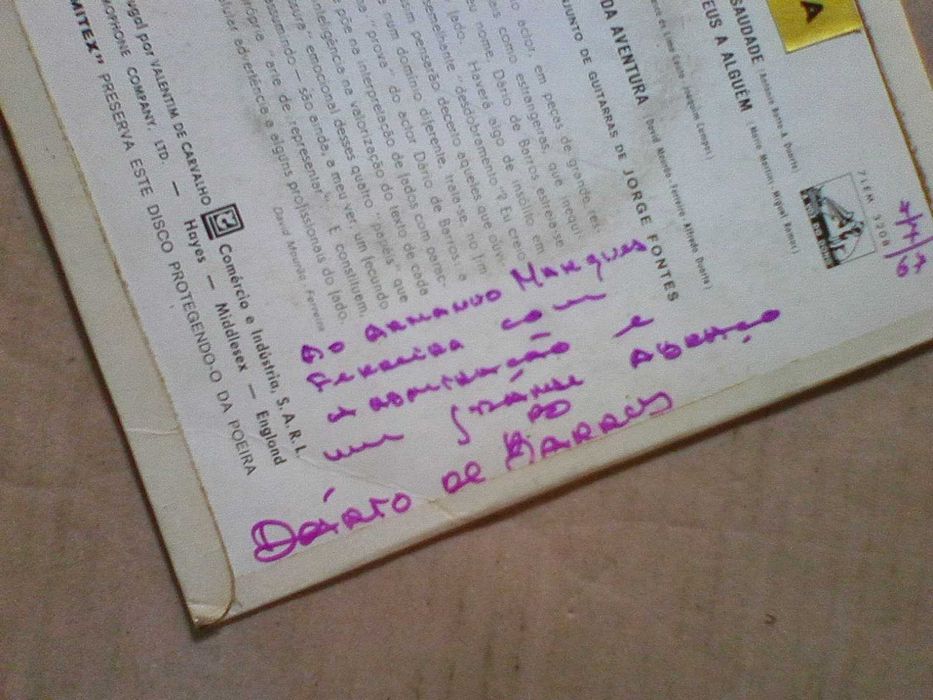 A
7 LEM 3208
SAUDADE (António Porto - A. Duarte)
EUS A ALGUÉM (Mário Martins - Miguel Ramos)
DA AVENTURA (David Mourão Ferreira - Alfredo Duarte)
JUNTO DE GUITARRAS DE JORGE FONTES
actor, em peças de grande
como estrangeiras, que
nome. Dário de Barros estreia-se
lado. Haverá algo de insólito em
semelhante "desdobramento"? Eu creio
penserão decerto aqueles que
num domínio diferente, trata-se, no fim
"prova" do actor Dário de Barros: a
na interpretação de fados com
inteligência na valorização do texto de cada
emocional desses quatro "papéis" que
assumindo — são ainda, a meu ver, um fecundo
própria "arte de representar". E constituem,
advertência a alguns profissionais do fado.
David Mourão Ferreira
por VALENTIM DE CARVALHO Comércio e Indústria, S.A.R.L.
COMPANY, LTD. — Hayes — Middlesex — England
MITEX" PRESERVA ESTE DISCO PROTEGENDO-O DA POEIRA
Ao Armando Marques
Ferreira com
a admiração e
um grande abraço
do
Dário de Barros